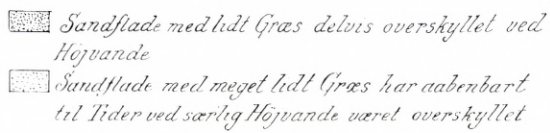 Sandflade med lidt Græs delvis overskyllet ved
Höjvande
Sandflade med meget lidt Græs har aabenbart
til Tider ved særlig Höjvande været overskyllet